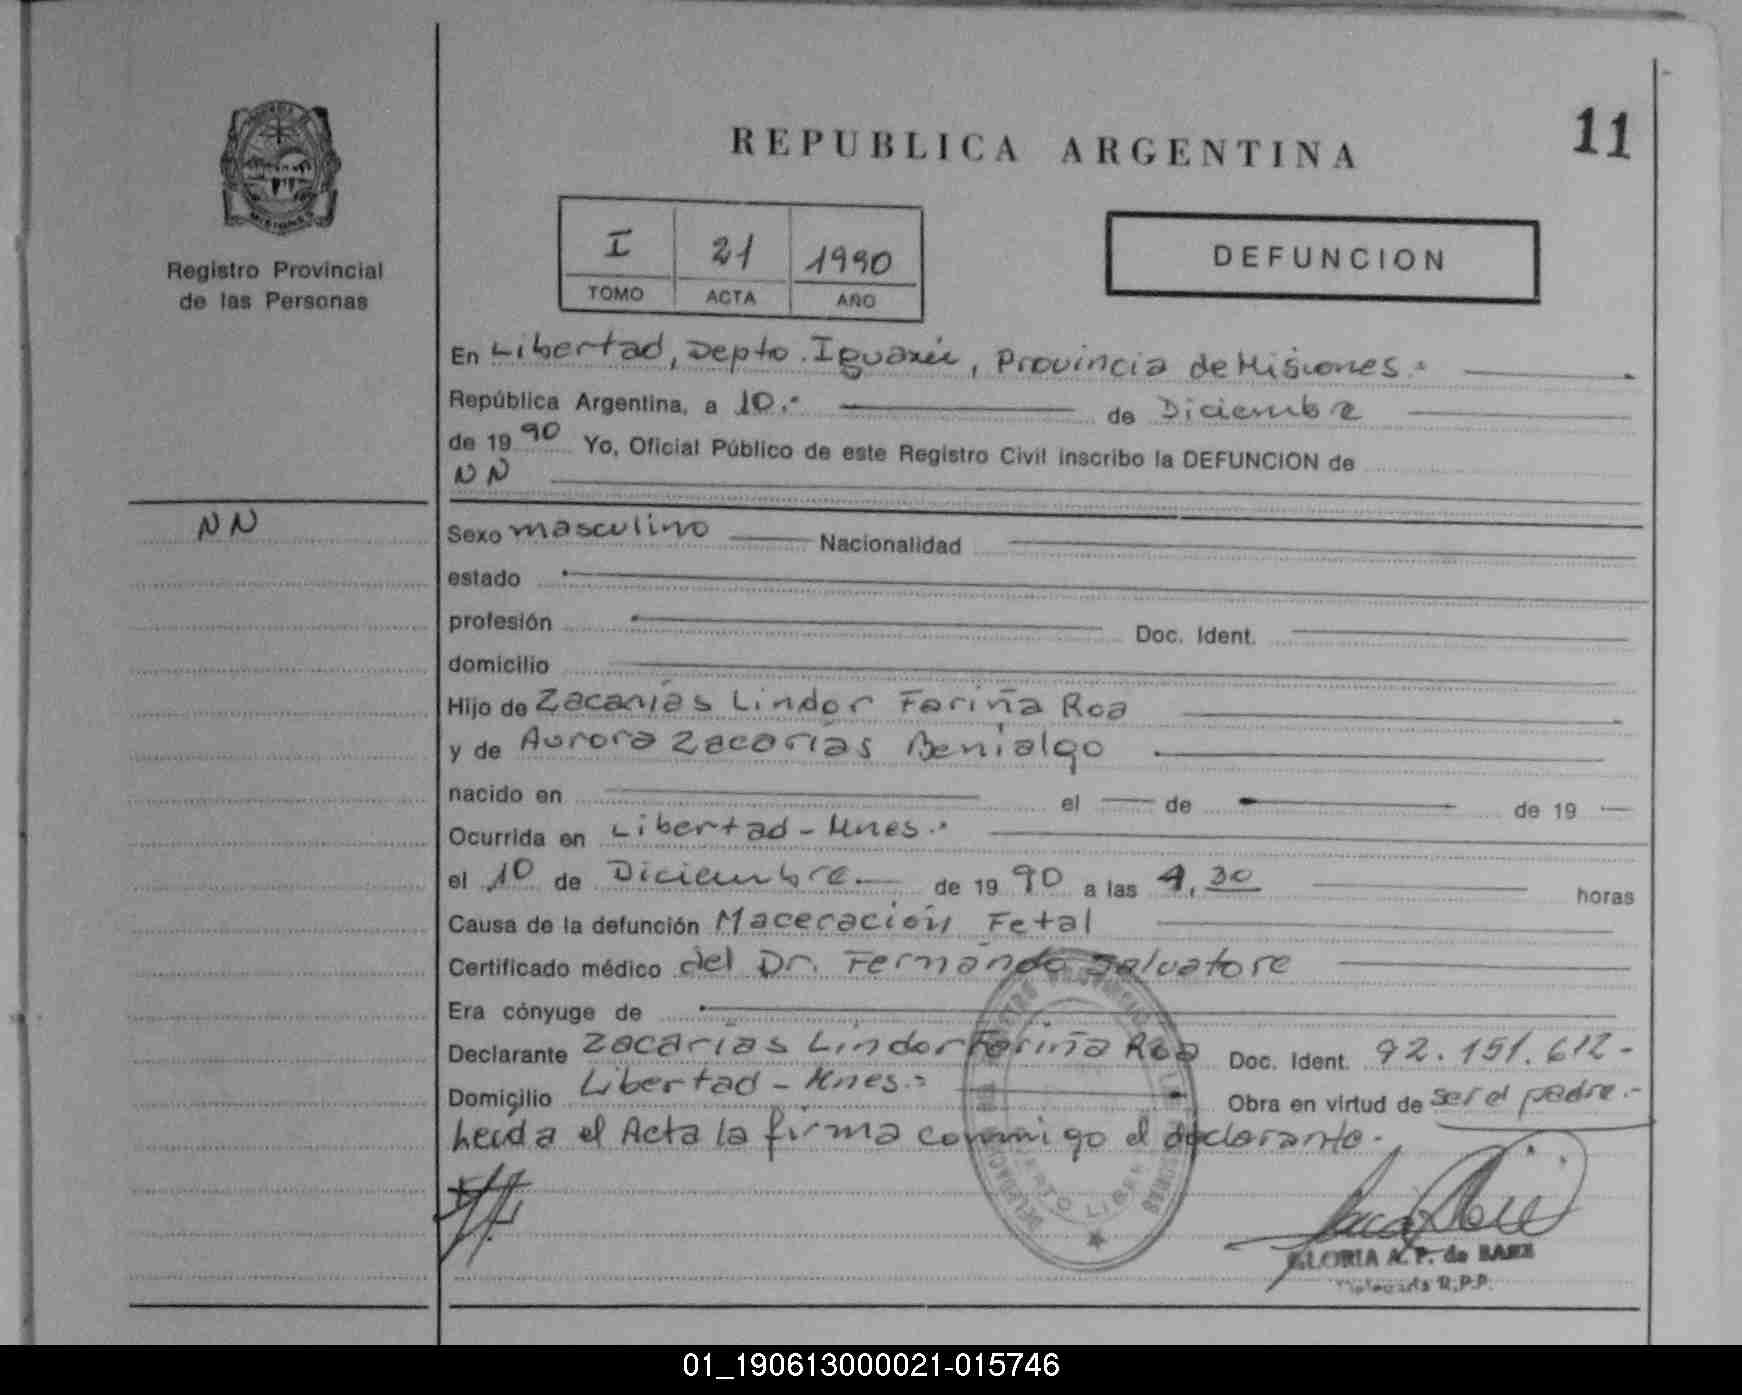 REPUBLICA ARGENTINA
11
MISIONES
Registro Provincial
de las Personas
I 21 1990
TOMO ACTA AÑO
DEFUNCION
En Libertad, Depto. Iguazú, Provincia de Misiones.-
República Argentina, a 10.- de Diciembre
de 1990 Yo, Oficial Público de este Registro Civil inscribo la DEFUNCION de
NN
NN
Sexo masculino Nacionalidad
estado
profesión Doc. Ident.
domicilio
Hijo de Zacarías Lindor Fariña Roa
y de Aurora Zacarías Benialgo
nacido en el de de 19
Ocurrida en Libertad - Mnes.-
el 10 de Diciembre.- de 1990 a las 4,30 horas
Causa de la defunción Maceración Fetal
Certificado médico del Dr. Fernando Salvatore
Era cónyuge de
Declarante Zacarías Lindor Fariña Roa Doc. Ident. 92.151.612-
Domicilio Libertad - Mnes.- Obra en virtud de ser el padre.-
Leida el Acta la firma conmigo el declarante.-
GLORIA A. P. de BAEZ
Delegada R.P.P.
01_190613000021-015746